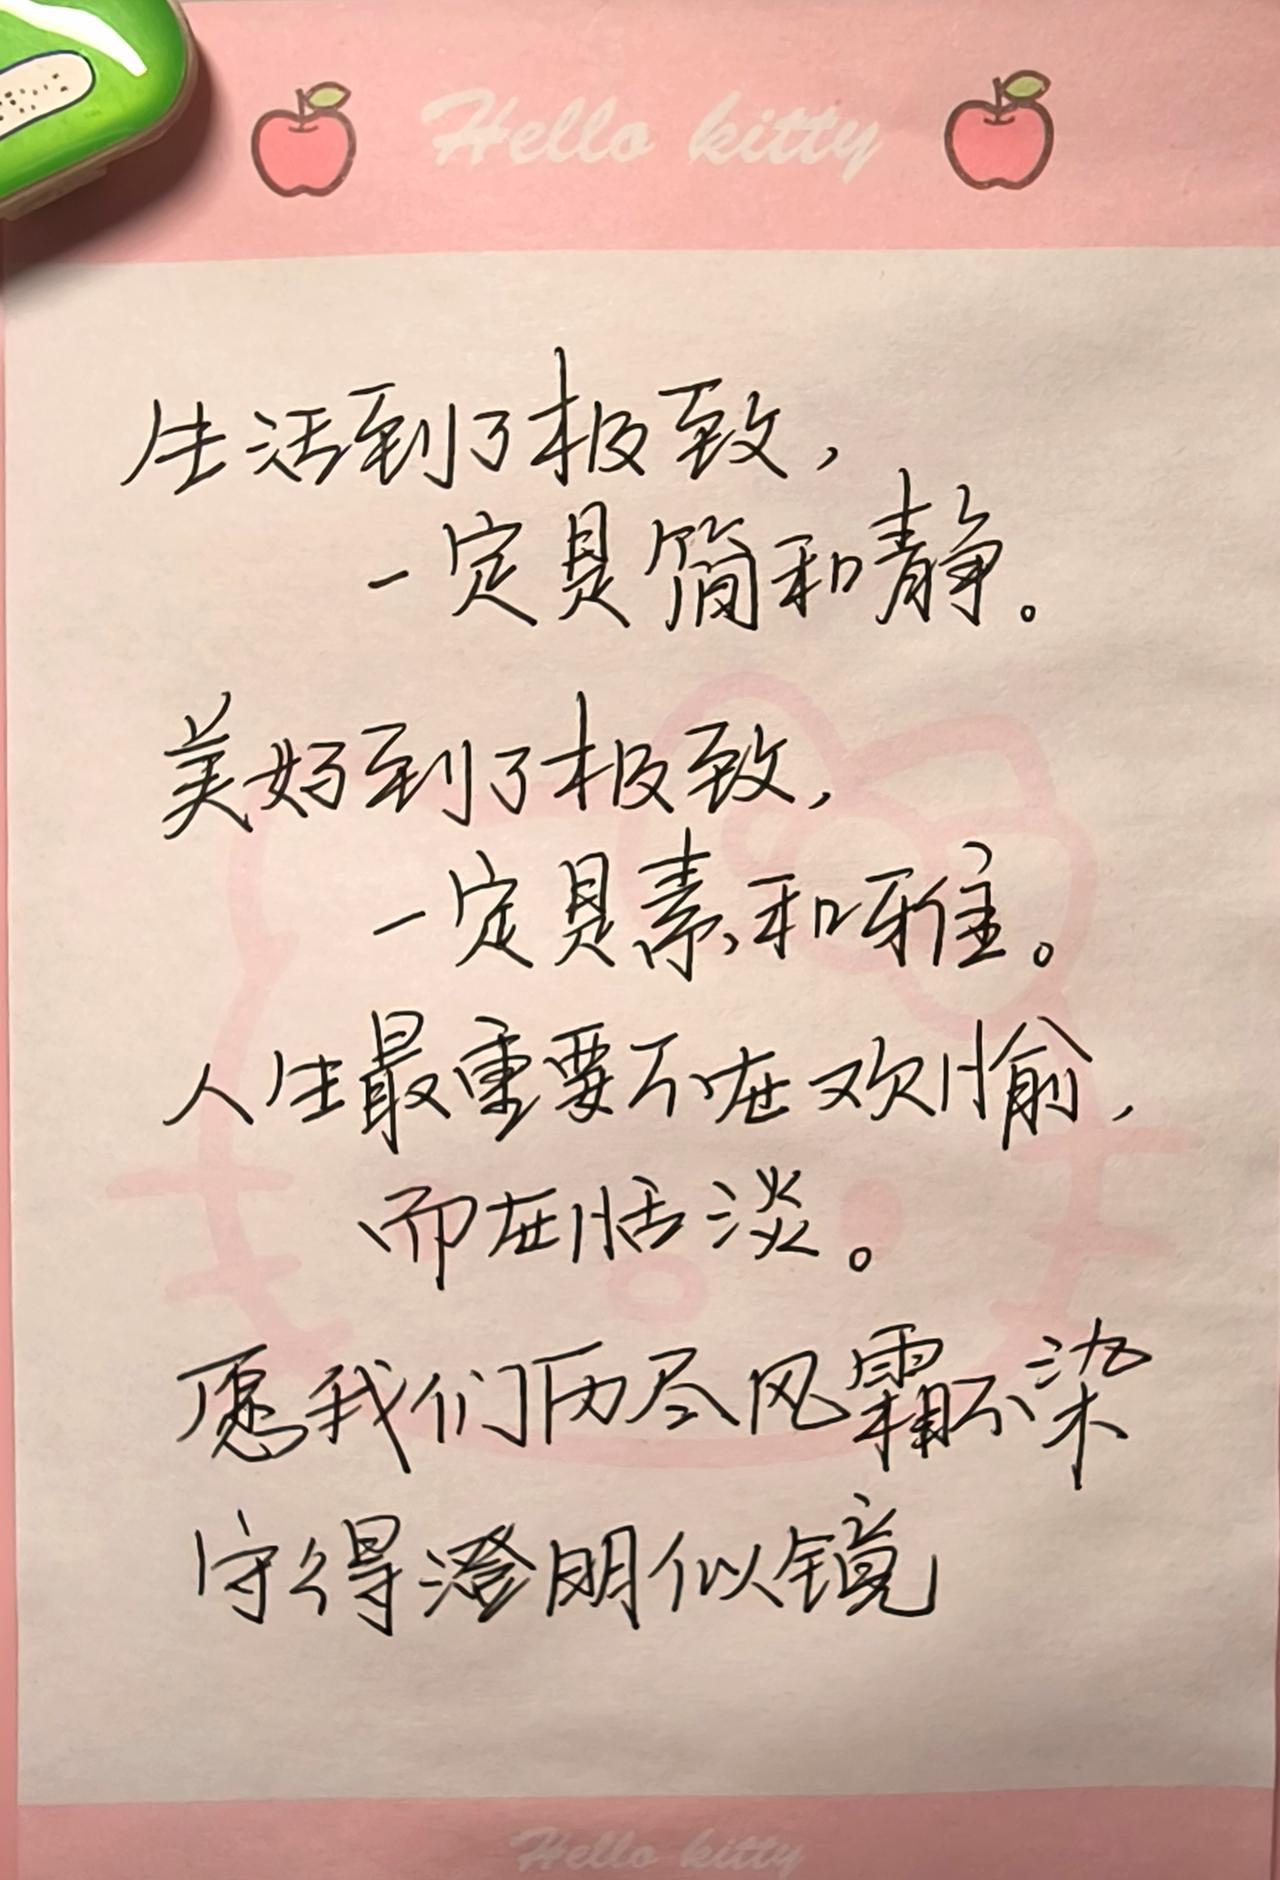 Hello kitty
生活到了极致，
一定是简和静。
美好到了极致，
一定是素和雅。
人生最重要不在欢愉，
而在恬淡。
愿我们历尽风霜不染
守得澄明似镜
Hello kitty